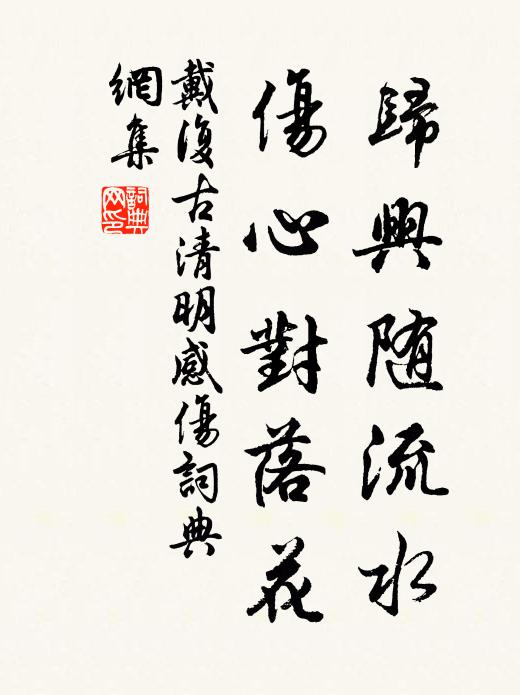 歸興随流水
傷心對落花
戴復古清明感傷詞典
網集
詞典網印